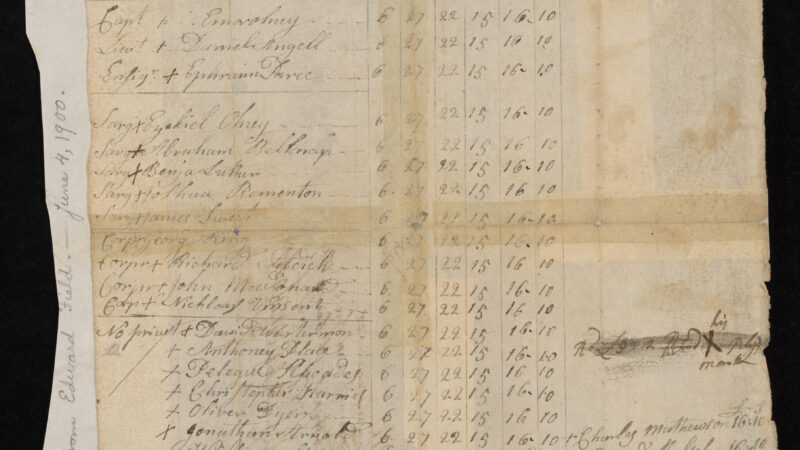 Capt + Em Olney 6 27 22 15 16-10
Lieut + Daniel Angell 6 27 22 15 16 10
Ensign + Ephraim Daree 6 27 22 15 16-10
Sarg + Ezekiel Olney 6 27 22 15 16-10
Sarg + Abraham Belknap 6 27 22 15 16-10
Sarg + Benja Luther 6 27 22 15 16 10
Sarg + Joshua Rementon 6 27 22 15 16 10
Sarg James Sweet 6 27 22 15 16-10
Corp Georg King 6 27 22 15 16-10
Corpr + Richard 6 27 22 15 16 10
Corpr + John 6 27 22 15 16 10
Corp + Nickloas Vinsent 6 27 22 15 16 10
No privet + David 6 27 22 15 16-10
his
X
mark
+ Anthoney Place 6 27 22 15 16-10
+ Pelegue Rhoades 6 27 22 15 16 10
+ Christopher Harries 6 27 22 15 16 10
+ Oliver Dyer 6 27 22 15 16 10
x Jonathan Arnold 6 27 22 15 16-10
+ Charles Mathewson 16-10
from Edward Field. — June 4, 1900.